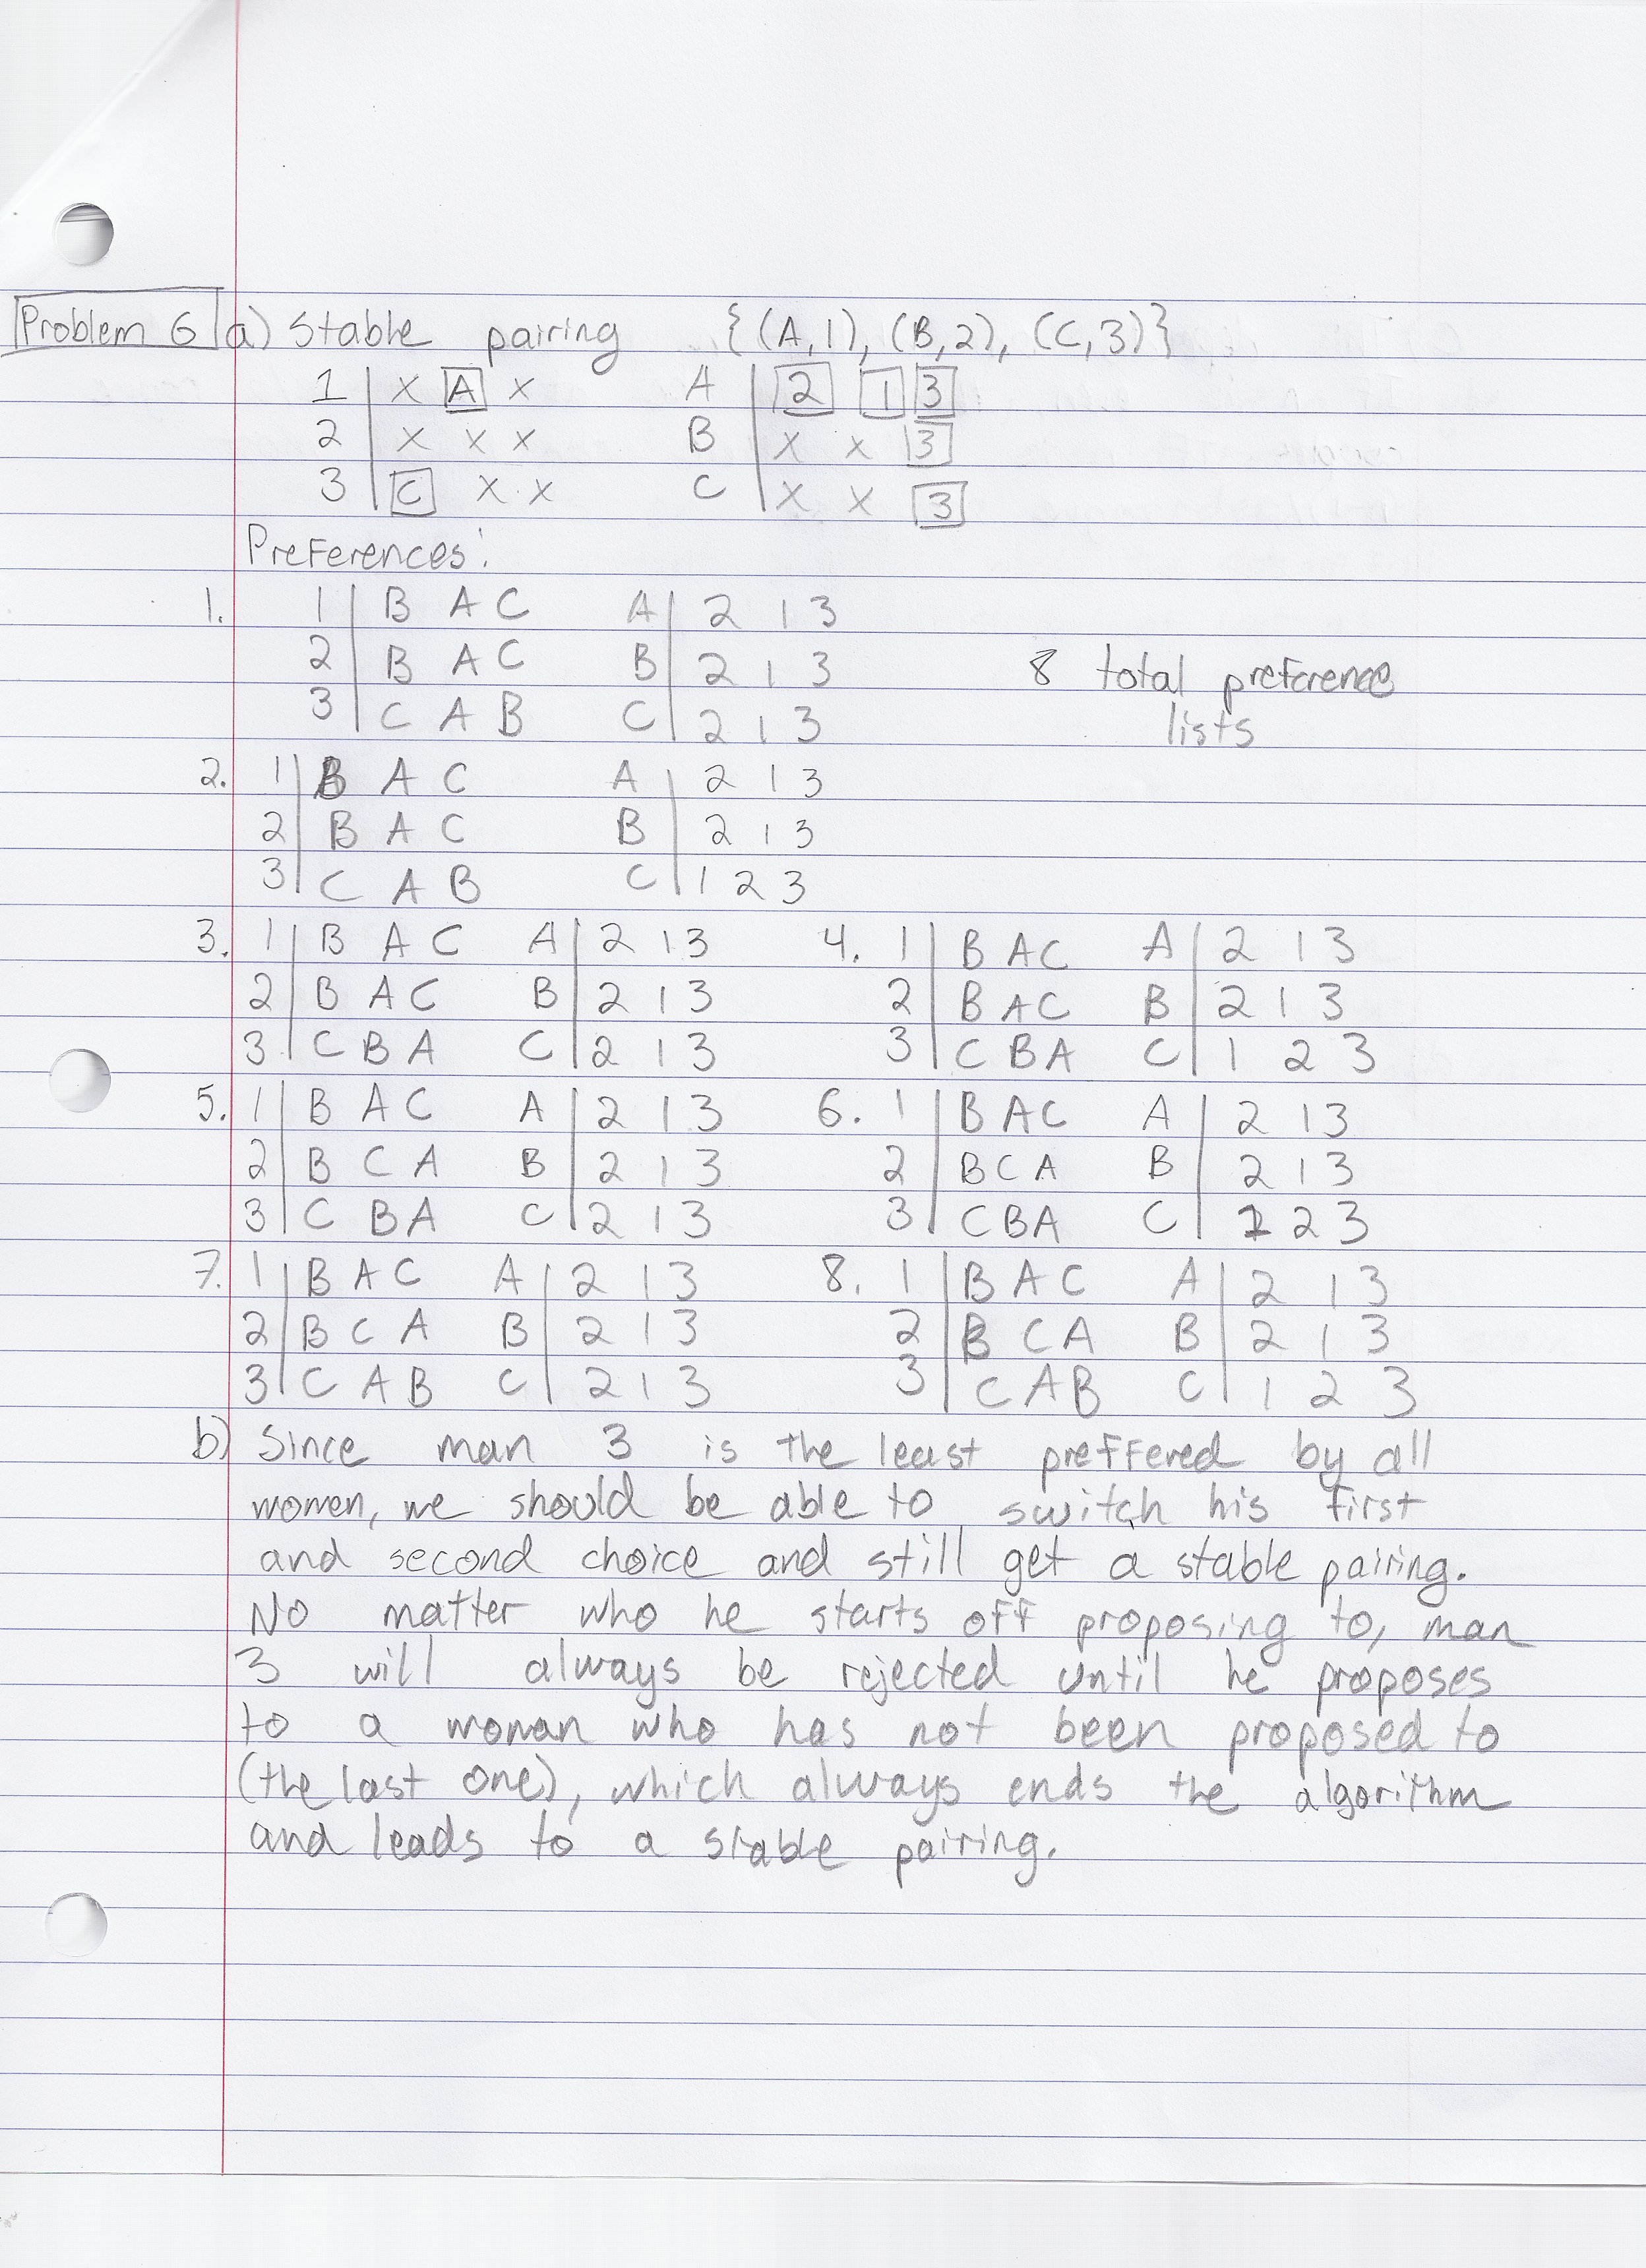 Problem 6 a) Stable pairing {(A,1), (B,2), (C,3)}
1 | x A x A | 2 1 3
2 | x x x B | x x 3
3 | C x x C | x x 3
Preferences:
1. 1 | B A C A | 2 1 3
2 | B A C B | 2 1 3
8 total preference
3 | C A B C | 2 1 3
lists
2. 1 | B A C A | 2 1 3
2 | B A C B | 2 1 3
3 | C A B C | 1 2 3
3. 1 | B A C A | 2 1 3 4. 1 | B A C A | 2 1 3
2 | B A C B | 2 1 3 2 | B A C B | 2 1 3
3 | C B A C | 2 1 3 3 | C B A C | 1 2 3
5. 1 | B A C A | 2 1 3 6. 1 | B A C A | 2 1 3
2 | B C A B | 2 1 3 2 | B C A B | 2 1 3
3 | C B A C | 2 1 3 3 | C B A C | 1 2 3
7. 1 | B A C A | 2 1 3 8. 1 | B A C A | 2 1 3
2 | B C A B | 2 1 3 2 | B C A B | 2 1 3
3 | C A B C | 2 1 3 3 | C A B C | 1 2 3
b) Since man 3 is the least preffered by all
women, we should be able to switch his first
and second choice and still get a stable pairing.
No matter who he starts off proposing to, man
3 will always be rejected until he proposes
to a woman who has not been proposed to
(the last one), which always ends the algorithm
and leads to a stable pairing.